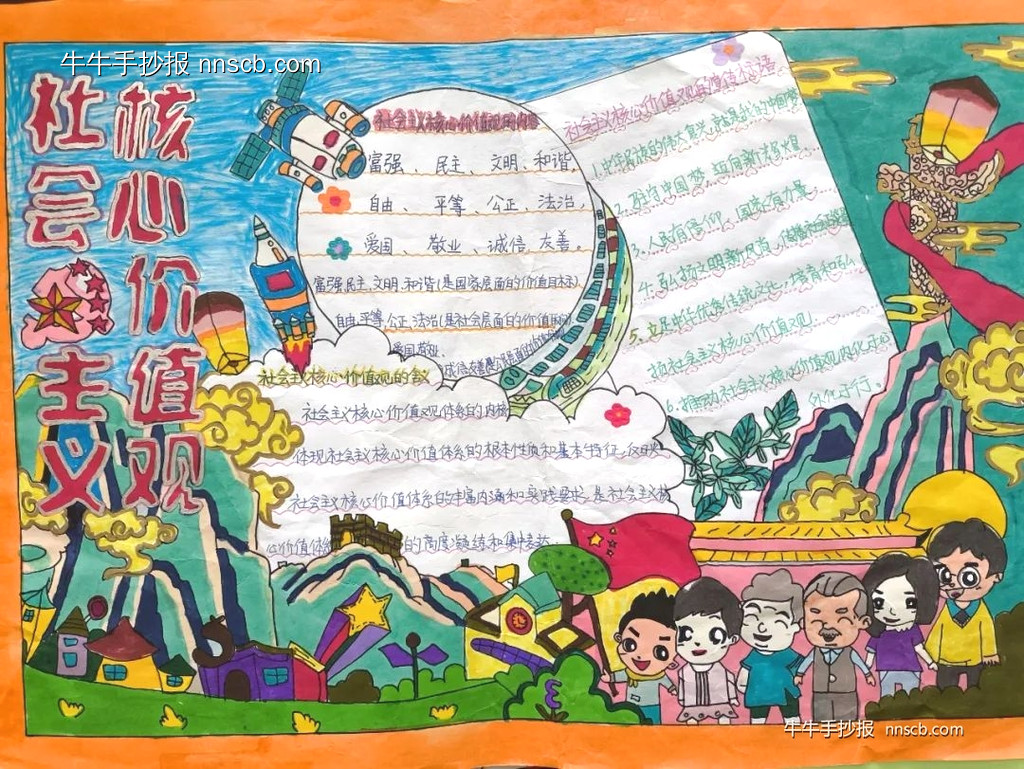 牛牛手抄报 nnscb.com
社会主义
核心价值观
社会主义核心价值观的内容
富强、民主、文明、和谐,
自由、平等、公正、法治,
爱国、敬业、诚信、友善。
富强,民主,文明,和谐(是国家层面的价值目标)
自由,平等,公正,法治(是社会层面的价值取向)
爱国,敬业、
社会主义核心价值观的含义
社会主义核心价值观体系的内核
体现社会主义核心价值体系的根本性质和基本特征,反映
社会主义核心价值体系的丰富内涵和实践要求,是社会主义核
心价值体 的高度凝练和集中表达
社会主义核心价值观宣传标语
1.中华民族的伟大复兴,就是我的中国梦
2. 坚守中国梦 迈向新
3.人民有信仰,国家有力量
4.弘扬文明新风尚,
5.立足中华优秀传统文化,培育和弘
扬社会主义核心价值观
6.推动社会主义核心价值观内化于心
外化于行。
牛牛手抄报 nnscb.com